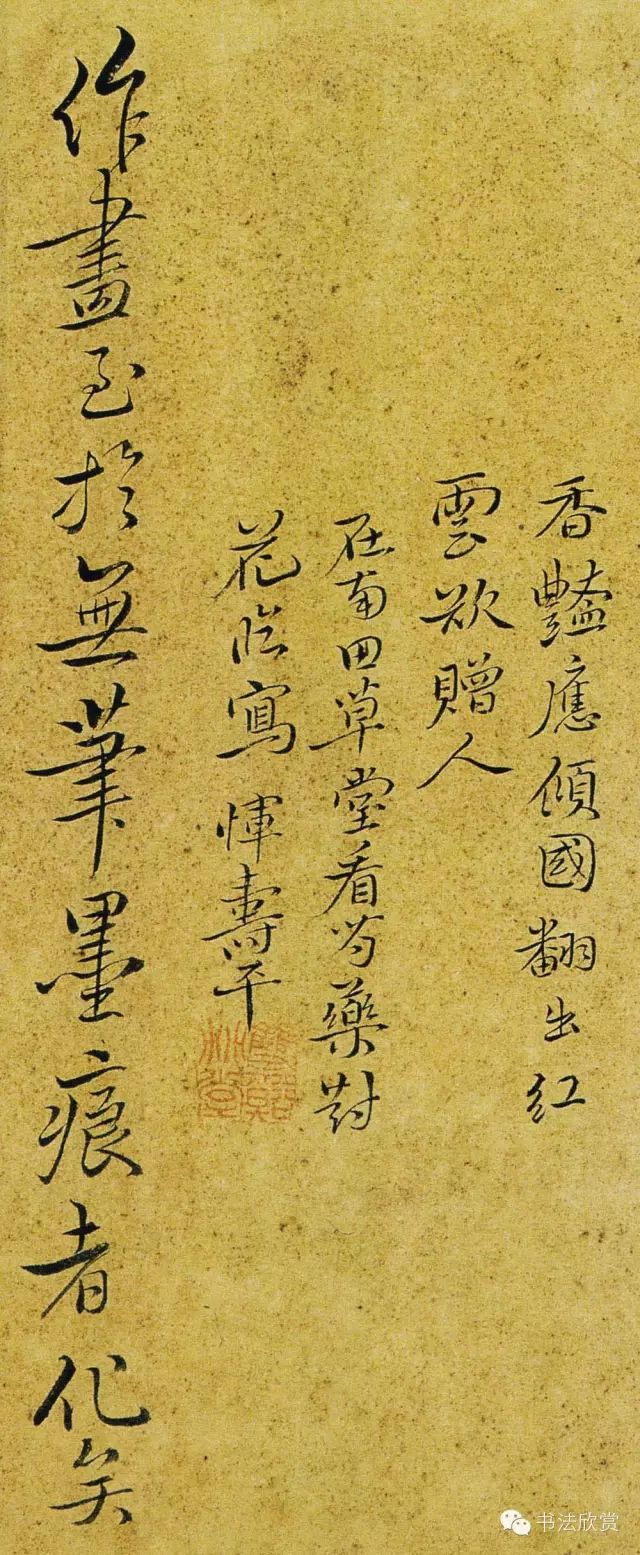 香豔應傾國翻出红
雲欲贈人
在南田草堂看芍藥對
花臨寫 惲壽平
作畫至於無筆墨痕者化矣
书法欣赏